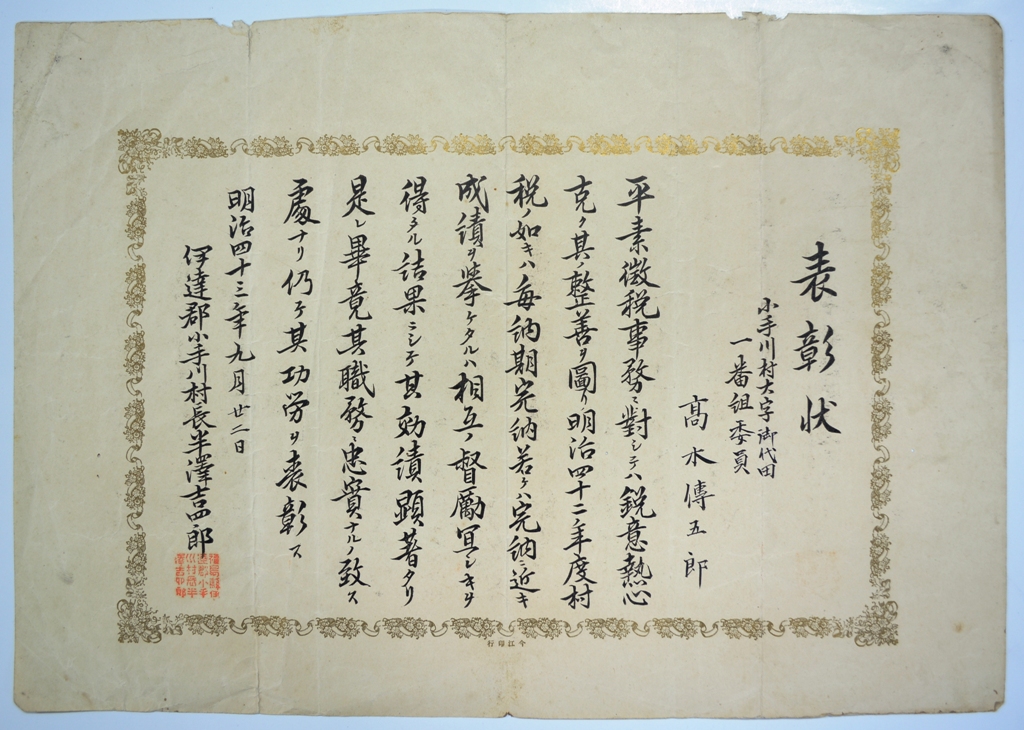 表彰状
小手川村大字御代田
一番組委員
高木傳五郎
平素徴税事務ニ對シテハ鋭意熱心
克ク其ノ整善ヲ圖リ明治四十二年度村
税ノ如キハ毎納期完納若クハ完納ニ近キ
成績ヲ挙ケタルハ相互ノ督勵宜シキヲ
得タル結果ニシテ其効績顕著タリ
是レ畢竟其職務ニ忠實ナルノ致ス
處ナリ仍テ其功労ヲ表彰ス
明治四十三年九月廿二日
伊達郡小手川村長半澤吉四郎
今江印行